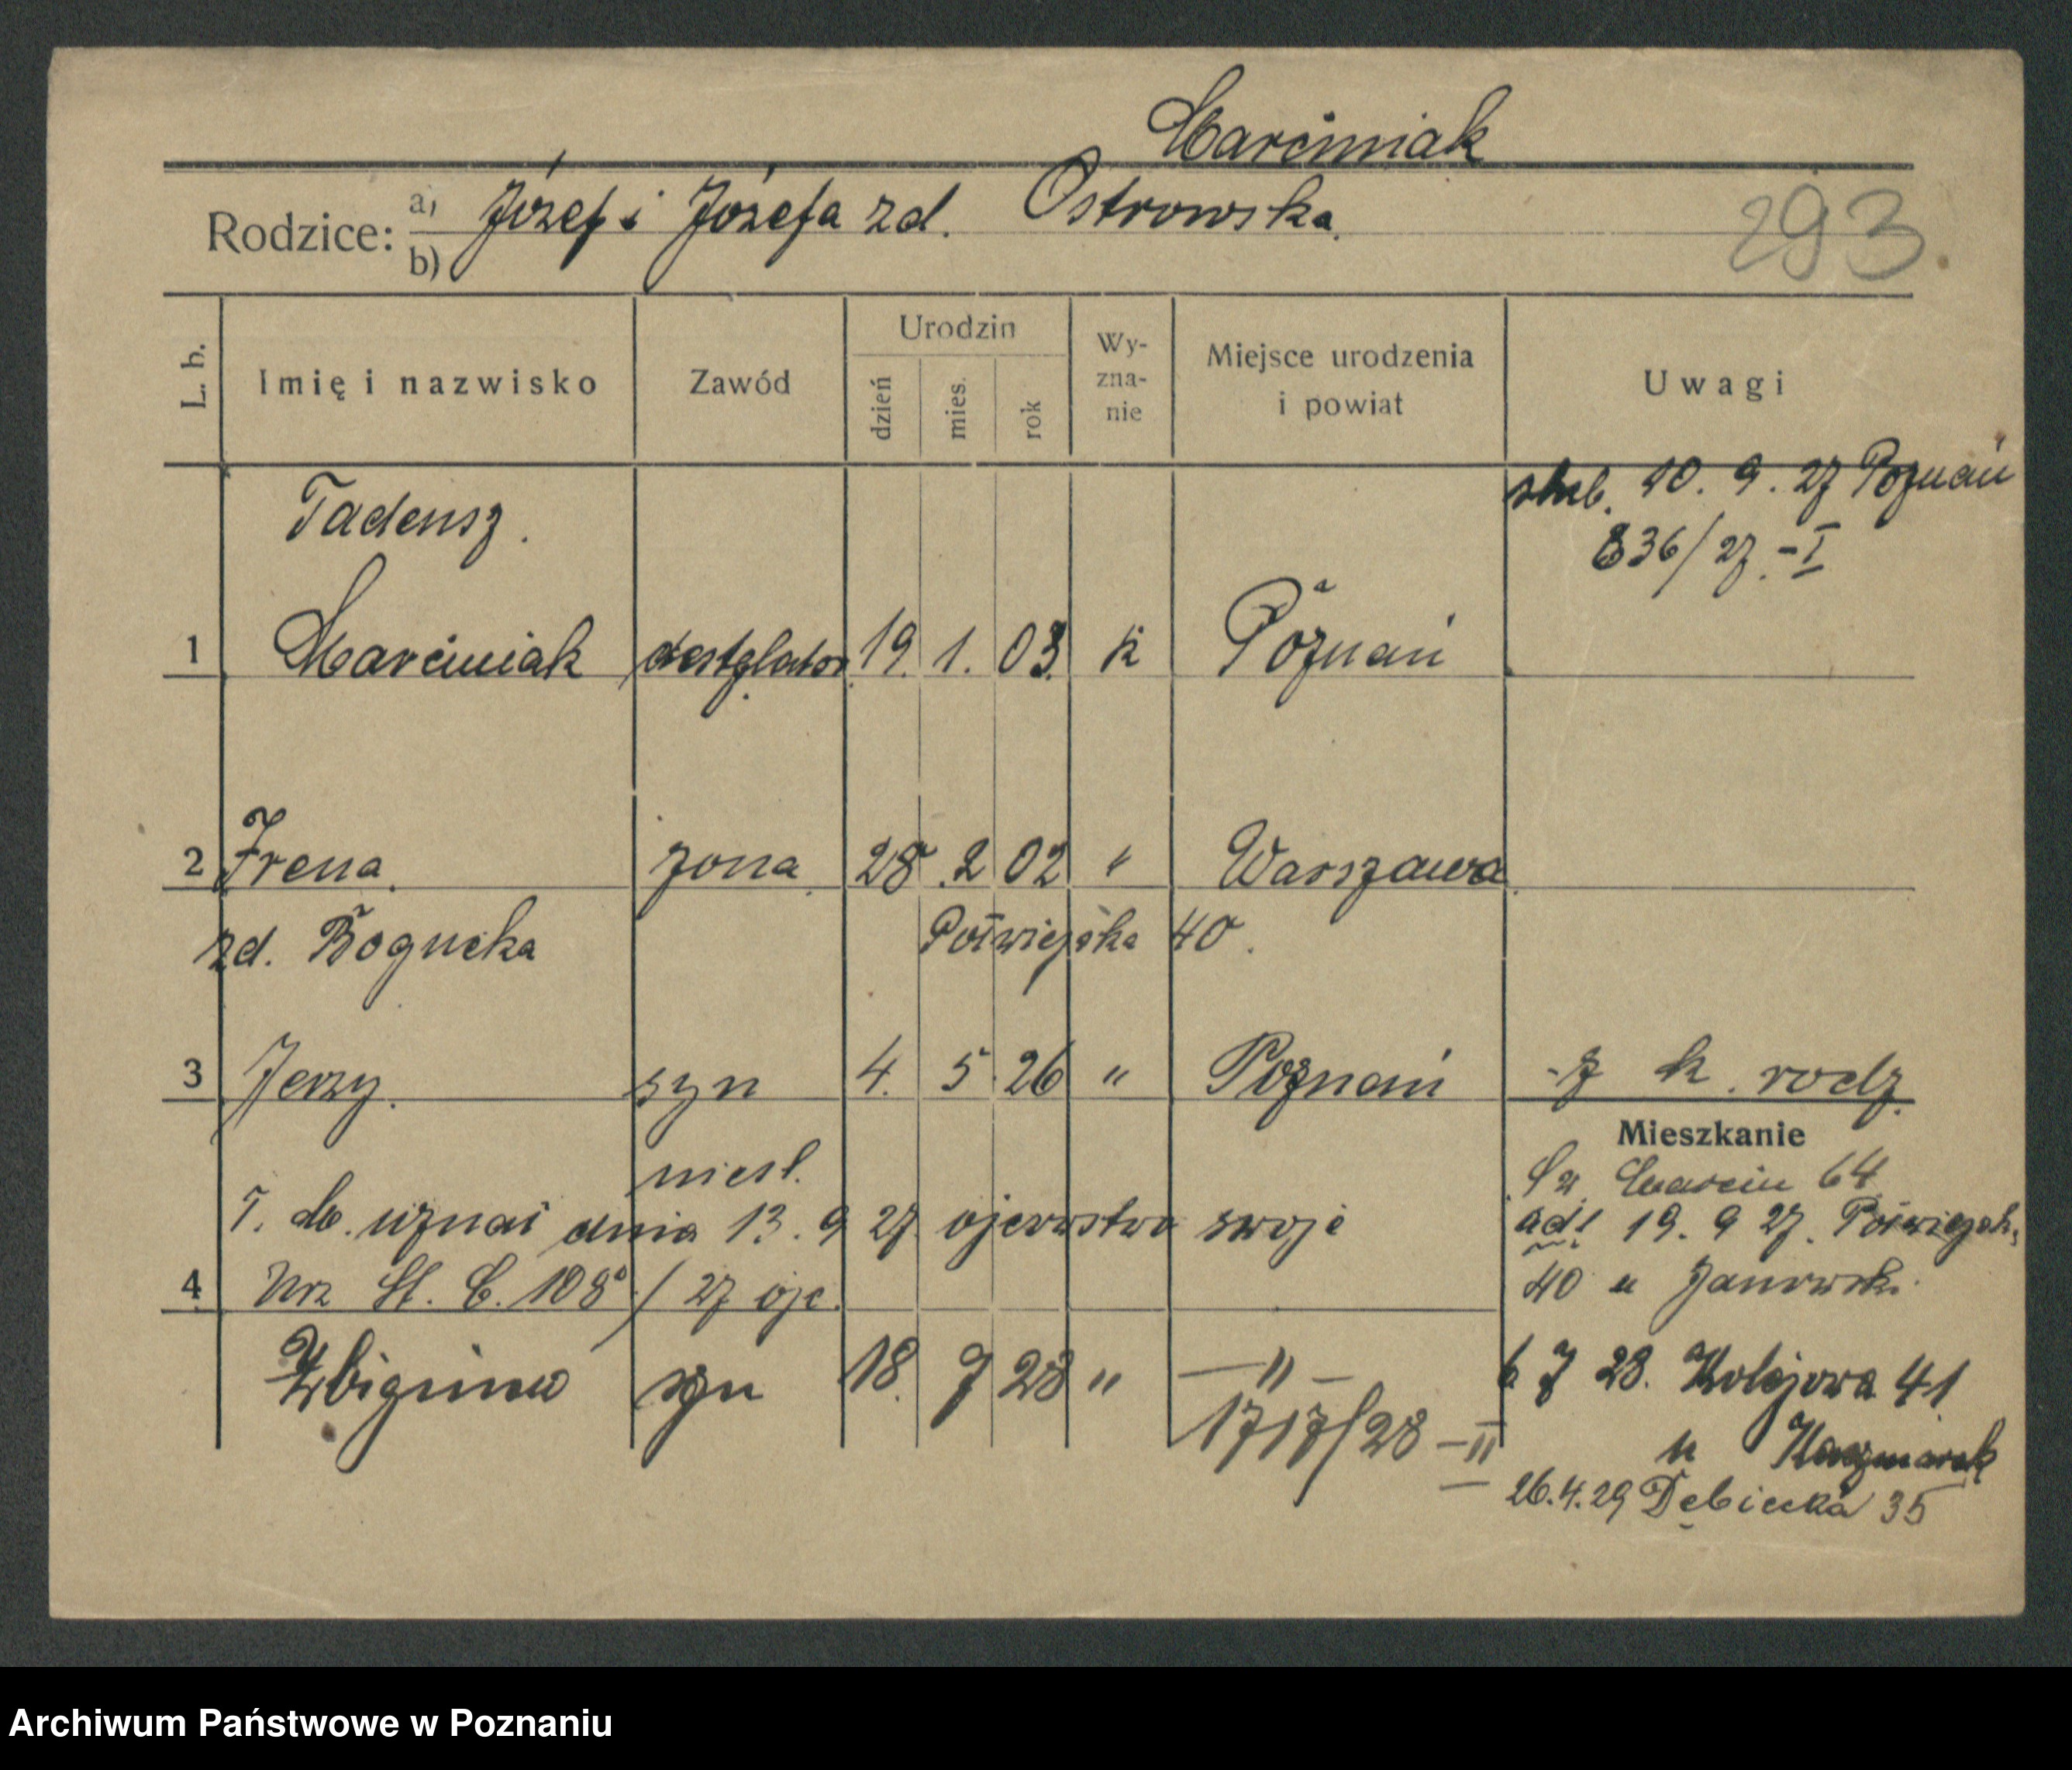 Marciniak
Rodzice: a) b) Józef i Józefa zd. Ostrowska.
293
L. b.
Imię i nazwisko
Zawód
Urodzin
dzień
mies.
rok
Wy-
zna-
nie
Miejsce urodzenia
i powiat
Uwagi
Tadeusz.
ślub. 10. 9. 27 Poznań
836/27. - I
1 Marciniak destylator 19. 1. 03. k Poznań
2 Irena. żona 28. 2 02 " Warszawa
zd. Bogucka Półwiejska 40.
3 Jerzy. syn 4. 5. 26 " Poznań - z k. rodz.
nieśl.
Mieszkanie
Św. Marcin 64
T. M. uznał dnia 13. 9 27 ojcowstwo swoje
ad! 19. 9 27. Półwiejsk.
40 u Janowski.
4 Urz St. C. /27 ojc.
Zbigniew syn 18. 7 28 " — " —
6 7 28. Kolejowa 41
u Kaczmarek
1717/28 - II
26.4.29 Dębiecka 35
Archiwum Państwowe w Poznaniu